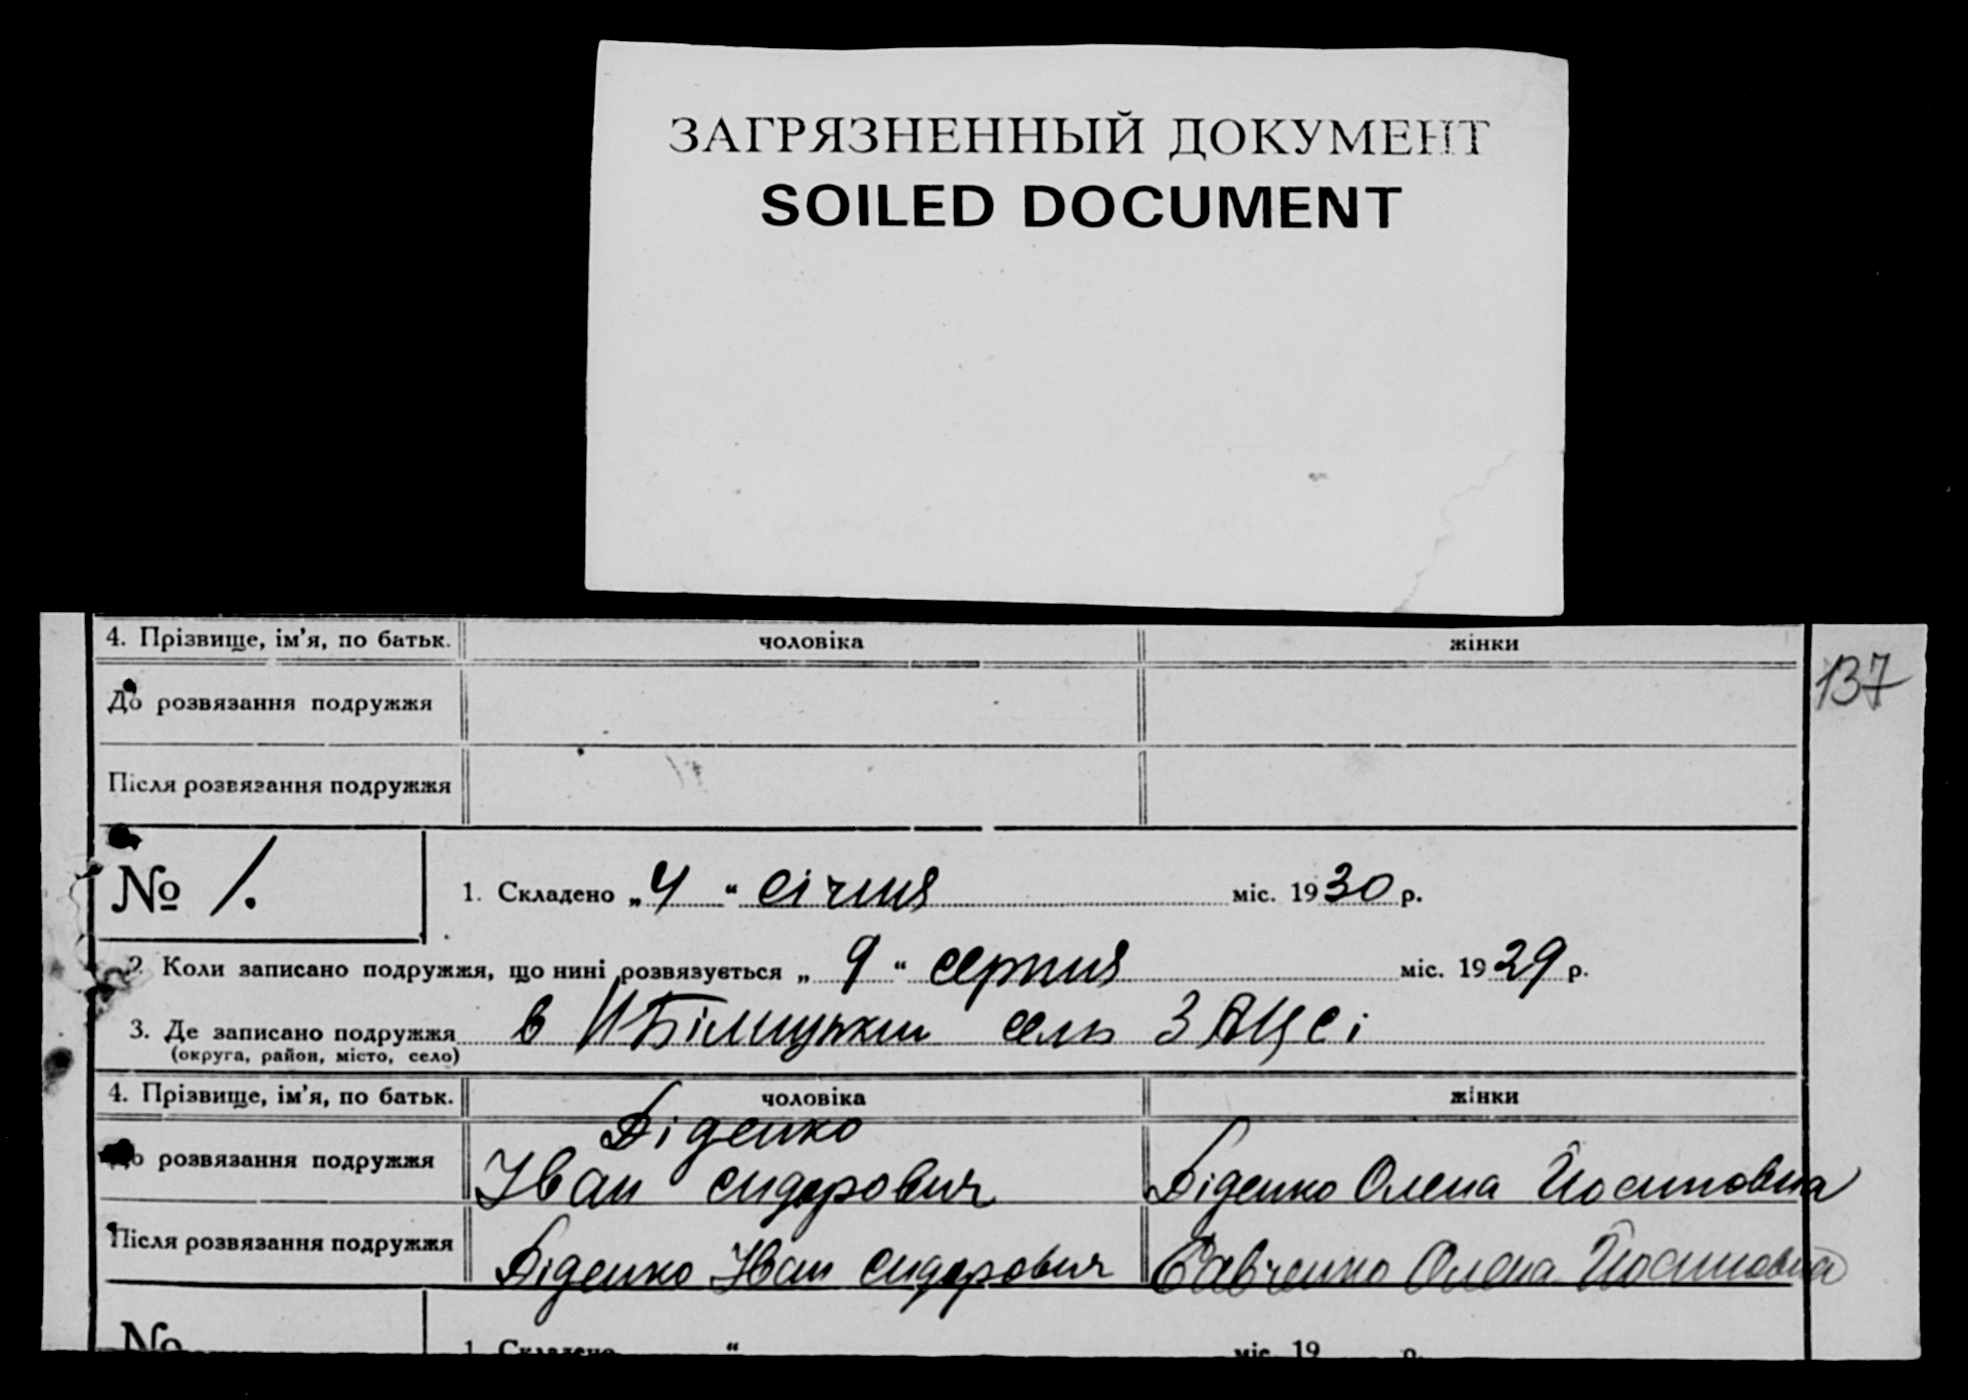 ЗАГРЯЗНЕННЫЙ ДОКУМЕНТ
SOILED DOCUMENT
4. Прізвище, ім’я, по батьк. чоловіка жінки
137
До розвязання подружжя
Після розвязання подружжя
№ 1.
1. Складено „4“ січня міс. 1930 р.
2. Коли записано подружжя, що нині розвязується „9“ серпня міс. 1929 р.
3. Де записано подружжя в сель ЗАЦСі
(округа, район, місто, село)
4. Прізвище, ім’я, по батьк. чоловіка жінки
До розвязання подружжя Діденко Іван Сидорович Діденко Олена Йосиповна
Після розвязання подружжя Діденко Іван Сидорович Савченко Олена Йосиповна
№ 1. Складено “ міс. 19 р.